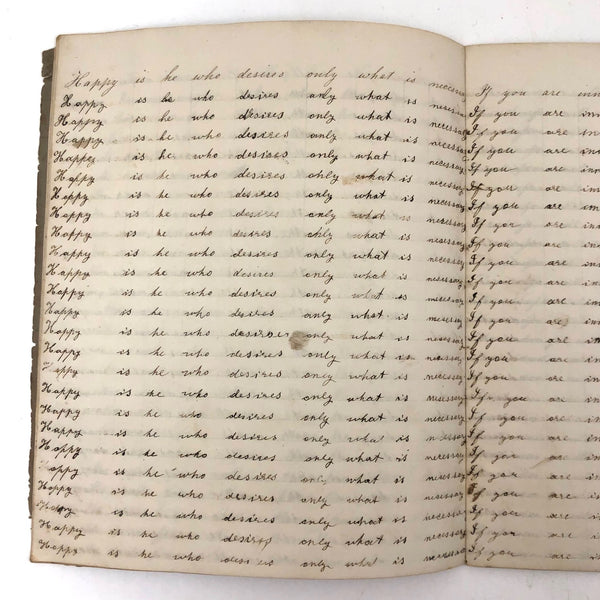 Happy is he who desires only what is necessary
Happy is he who desires only what is necessary
Happy is he who desires only what is necessary
Happy is he who desires only what is necessary
Happy is he who desires only what is necessary
Happy is he who desires only what is necessary
Happy is he who desires only what is necessary
Happy is he who desires only what is necessary
Happy is he who desires only what is necessary
Happy is he who desires only what is necessary
Happy is he who desires only what is necessary
Happy is he who desires only what is necessary
Happy is he who desires only what is necessary
Happy is he who desires only what is necessary
Happy is he who desires only what is necessary
Happy is he who desires only what is necessary
Happy is he who desires only what is necessary
Happy is he who desires only what is necessary
Happy is he who desires only what is necessary
Happy is he who desires only what is necessary
Happy is he who desires only what is necessary
Happy is he who desires only what is necessary
Happy is he who desires only what is necessary
Happy is he who desires only what is necessary
Happy is he who desires only what is necessary
If you are
If you are
If you are
If you are
If you are
If you are
If you are
If you are
If you are
If you are
If you are
If you are
If you are
If you are
If you are
If you are
If you are
If you are
If you are
If you are
If you are
If you are
If you are
If you are
If you are